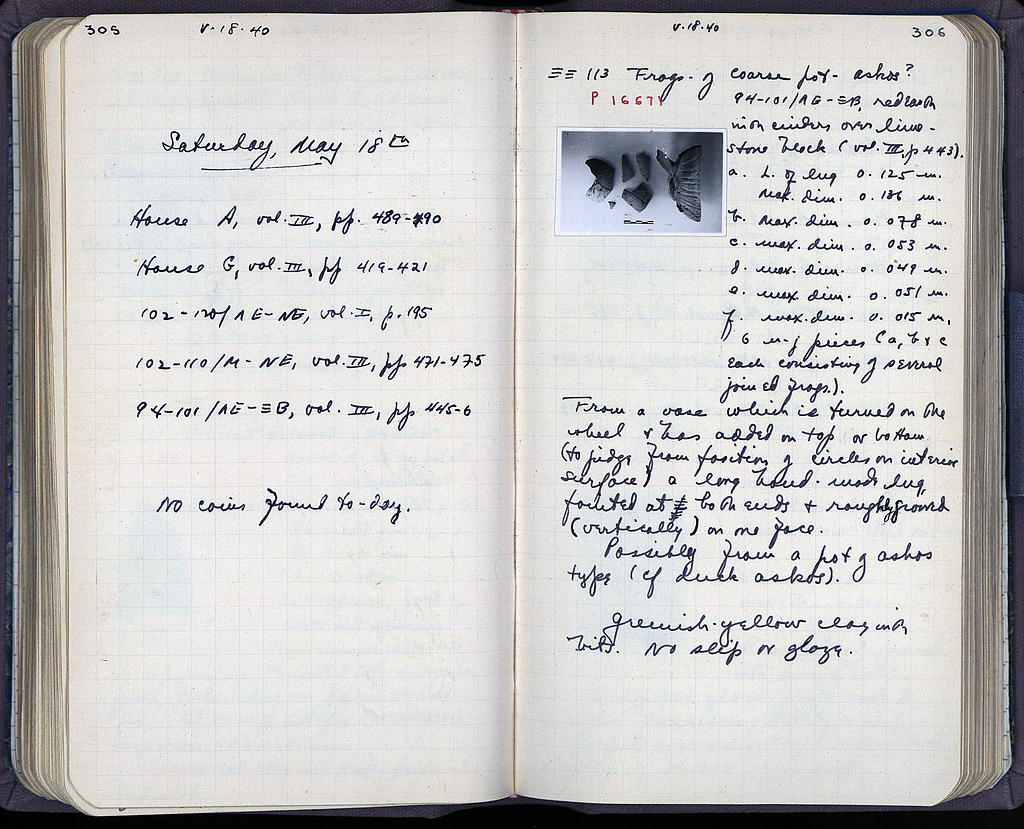 305
V·18·40
Saturday, May 18th
House A, vol. III, pp. 489-490
House G, vol. III, pp 419-421
102-120/ΛE-NE, vol. I, p. 195
102-110/M-NE, vol. III, pp 471-475
94-101/ΛE-ΞB, vol. III, pp 445-6
No coins found to-day.
V·18·40
306
ΞΞ 113 Frags. of coarse pot - askos?
P 16671
94-101/ΛE-ΞB, red earth
with cinders over lime-
stone block (vol. III, p 443).
a. L. of lug 0.125 m.
max. dim. 0.136 m.
b. max. dim. 0.078 m.
c. max. dim. 0.053 m.
d. max. dim. 0.049 m.
e. max. dim. 0.051 m.
f. max. dim. 0.015 m.
6 n-j pieces (a, b & c
each consisting of several
joined frags.).
From a vase which is turned on the
wheel & has added on top or bottom
(to judge from position of circles on interior
surface) a long hand-made lug,
pointed at both ends & roughly grooved
(vertically) on one face.
Possibly from a pot of askos
type (cf duck askos).
Greenish-yellow clay with
bits. No slip or glaze.